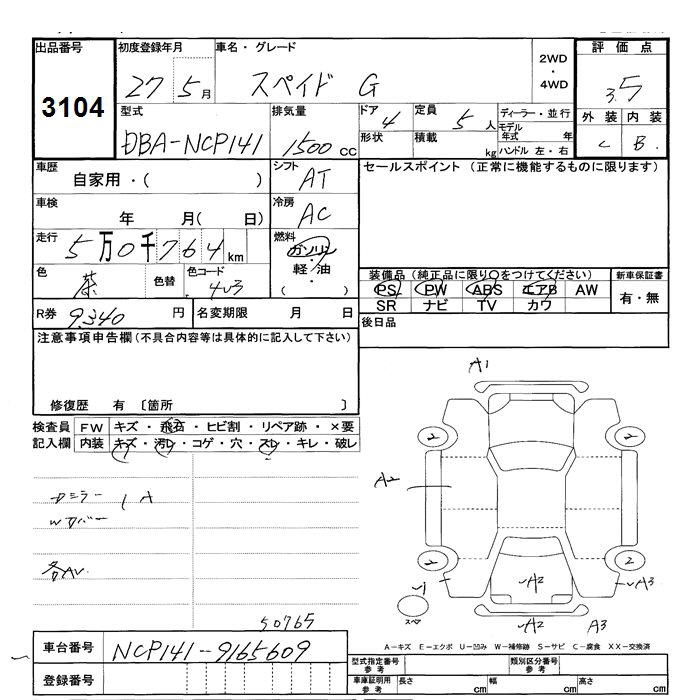 出品番号 初度登録年月 車名・グレード 2WD ・ 4WD 評価点
3104 27 5月 スペイド G 3.5
型式 排気量 ドア 4 定員 5人 ディーラー・並行 外装 内装
DBA-NCP141 1500cc 形状 積載 kg モデル年式 年 ハンドル 左・右 C B
車歴 シフト セールスポイント (正常に機能するものに限ります)
自家用・( ) AT
車検 冷房
年 月( 日) AC
走行 燃料
5万0千764km ガソリン
色 色替 色コード 軽・油 装備品 (純正品に限り○をつけてください) 新車保証書
茶 4V3 ( ) PS PW ABS エアB AW 有・無
R券 9,340円 名変期限 月 日 SR ナビ TV カワ
注意事項申告欄(不具合内容等は具体的に記入して下さい) 後日品
修復歴 有 〔箇所 〕
検査員 FW キズ・飛石・ヒビ割・リペア跡・×要
記入欄 内装 キズ・汚レ・コゲ・穴・スレ・キレ・破レ
A1
2 2
A2
ミラー A
W カバー
各AU
2 2
A2 A3
スペア
A2 A3
50765
A-キズ E-エクボ U-凹み W-補修跡 S-サビ C-腐食 XX-交換済
車台番号 NCP141-9165609
登録番号
型式指定番号 参考 類別区分番号 参考
車庫証明用 参考 長さ cm 幅 cm 高さ cm